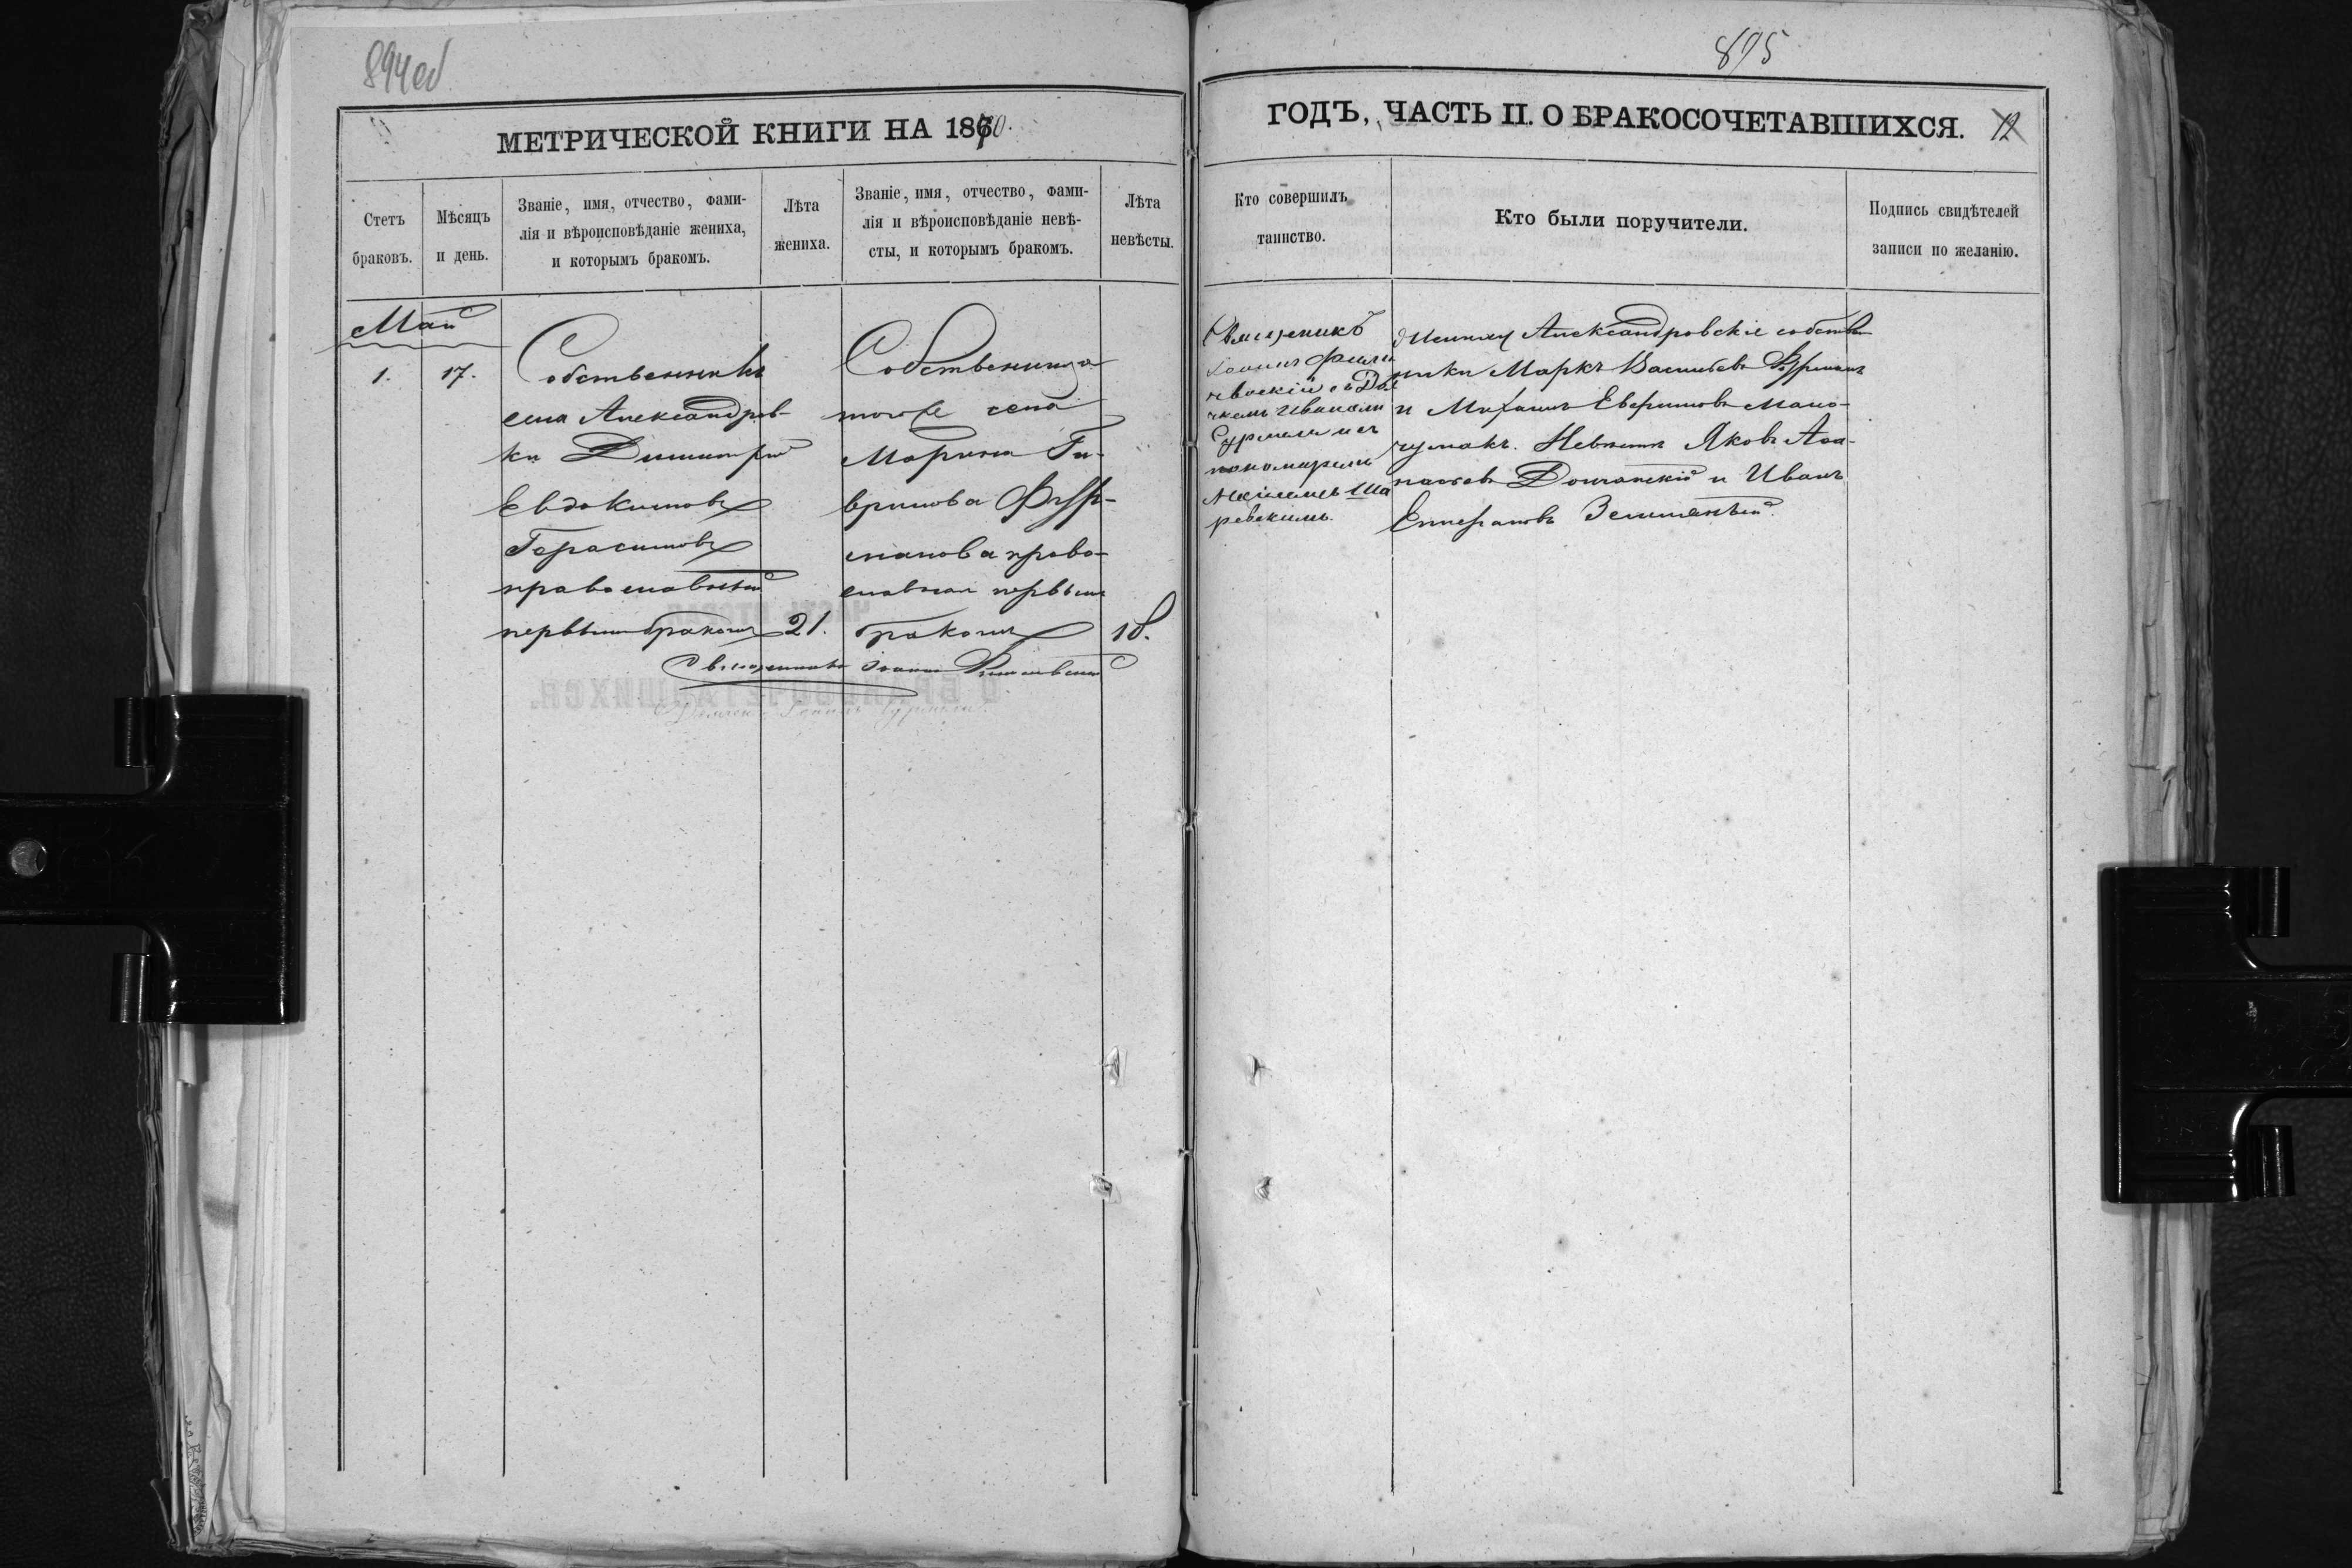 894об
МЕТРИЧЕСКОЙ КНИГИ НА 1870.
Стетъ
браковъ.
Мѣсяцъ
и день.
Званіе, имя, отчество, фами-
лія и вѣроисповѣданіе жениха,
и которымъ бракомъ.
Лѣта
жениха.
Званіе, имя, отчество, фами-
лія и вѣроисповѣданіе невѣ-
сты, и которымъ бракомъ.
Лѣта
невѣсты.
Май
1.
17.
Собственникъ
села Александров-
ки Димитрій
Евдокимовъ
Герасимовъ
православный
первымъ бракомъ
21.
Собственница
тогоже села
Марина Га-
врилова Фур-
манова право-
славная первымъ
бракомъ
18.
Священникъ Іоаннъ
895
ГОДЪ, ЧАСТЬ II. О БРАКОСОЧЕТАВШИХСЯ.
12
Кто совершилъ
таинство.
Кто были поручители.
Подпись свидѣтелей
записи по желанію.
Священикъ
Іоаннъ
съ Дья
чкомъ Иваномъ
и съ
пономаремъ
Ша
ревскимъ.
Жениху Александровскіе собствен
ники Маркъ Васильевъ Фурманъ
и Михаилъ Евфимовъ Мало-
чумакъ. Невѣсты Яковъ Аѳа-
насьевъ и Иванъ